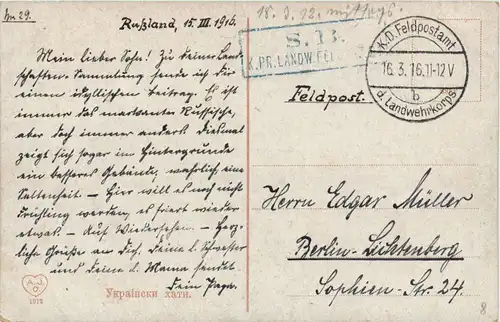 No 29.
Rußland, 15. III. 1916.
Mein lieber Sohn! Zu deiner Land-
schaften-Sammlung sende ich dir
einen idyllischen Beitrag. Es ist
immer das markante Russische,
aber doch immer anders. Diesmal
zeigt sich sogar im Hintergrunde
ein besseres Gebäude, wahrlich eine
Seltenheit. – Hier will es noch nicht
Frühling werden, es friert wieder
etwas. – Auf Wiedersehen. – Herz-
liche Grüße an Dich, deine Schwester
und deine l. Mama sendet
Dein Papa.
A.J.
O.
1912
Українски хати.
S. B.
K. PR. LANDW.
K.D. Feldpostamt
16.3.16.11-12V
b
d. Landwehrkorps
Feldpost.
Herrn Edgar Müller
Berlin-Lichtenberg
Sophien-Str. 24.
8